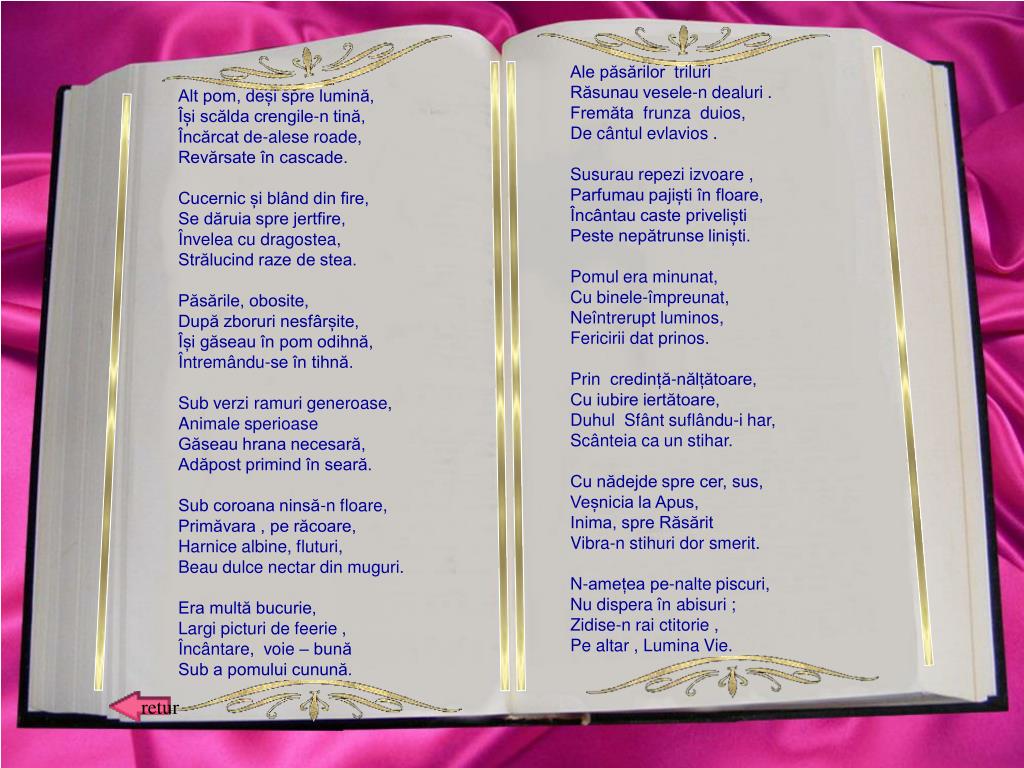 Alt pom, deși spre lumină,
Își scălda crengile-n tină,
Încărcat de-alese roade,
Revărsate în cascade.

Cucernic și blând din fire,
Se dăruia spre jertfire,
Învelea cu dragostea,
Strălucind raze de stea.

Păsările, obosite,
După zboruri nesfârșite,
Își găseau în pom odihnă,
Întremându-se în tihnă.

Sub verzi ramuri generoase,
Animale sperioase
Găseau hrana necesară,
Adăpost primind în seară.

Sub coroana ninsă-n floare,
Primăvara , pe răcoare,
Harnice albine, fluturi,
Beau dulce nectar din muguri.

Era multă bucurie,
Largi picturi de feerie ,
Încântare,  voie – bună
Sub a pomului cunună.

retur

Ale păsărilor  triluri
Răsunau vesele-n dealuri .
Fremăta  frunza  duios,
De cântul evlavios .

Susurau repezi izvoare ,
Parfumau pajiști în floare,
Încântau caste priveliști
Peste nepătrunse liniști.

Pomul era minunat,
Cu binele-împreunat,
Neîntrerupt luminos,
Fericirii dat prinos.

Prin  credință-nălțătoare,
Cu iubire iertătoare,
Duhul  Sfânt suflându-i har,
Scânteia ca un stihar.

Cu nădejde spre cer, sus,
Veșnicia la Apus,
Inima, spre Răsărit
Vibra-n stihuri dor smerit.

N-amețea pe-nalte piscuri,
Nu dispera în abisuri ;
Zidise-n rai ctitorie ,
Pe altar , Lumina Vie.